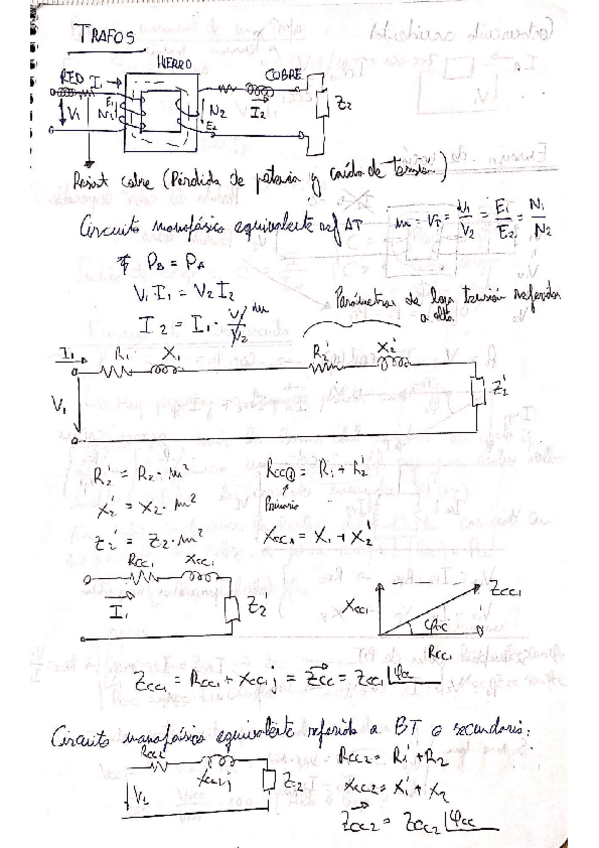 TRAFOS
HIERRO
RED I₁ COBRE
V₁ N₁ E₁ N₂ E₂ I₂ Z₂
Resist cobre (Pérdida de potencia y caída de tensión)
Circuito monofásico equivalente ref AT m = V_T = V₁/V₂ = E₁/E₂ = N₁/N₂
P_B = P_A
V₁I₁ = V₂I₂
I₂ = I₁ · V₁/V₂ m
Parámetros de baja tensión referidos
a alta
I₁ R₁ X₁ R₂' X₂'
V₁ Z₂'
R₂' = R₂ · m² Rcc₁ = R₁ + R₂'
X₂' = X₂ · m² Primario
Z₂' = Z₂ · m² Xcc₁ = X₁ + X₂'
Rcc₁ Xcc₁
I₁ Z₂' Xcc₁ Zcc₁ φcc Rcc₁
Zcc₁ = Rcc₁ + Xcc₁j = Zcc = Zcc₁ ⌊φcc
Circuito monofásico equivalente referido a BT o secundario:
Rcc₂ Xcc₂j Z₂ Rcc₂ = R₁' + R₂
V₂ Xcc₂ = X₁' + X₂
Zcc₂ = Zcc₂ ⌊φcc